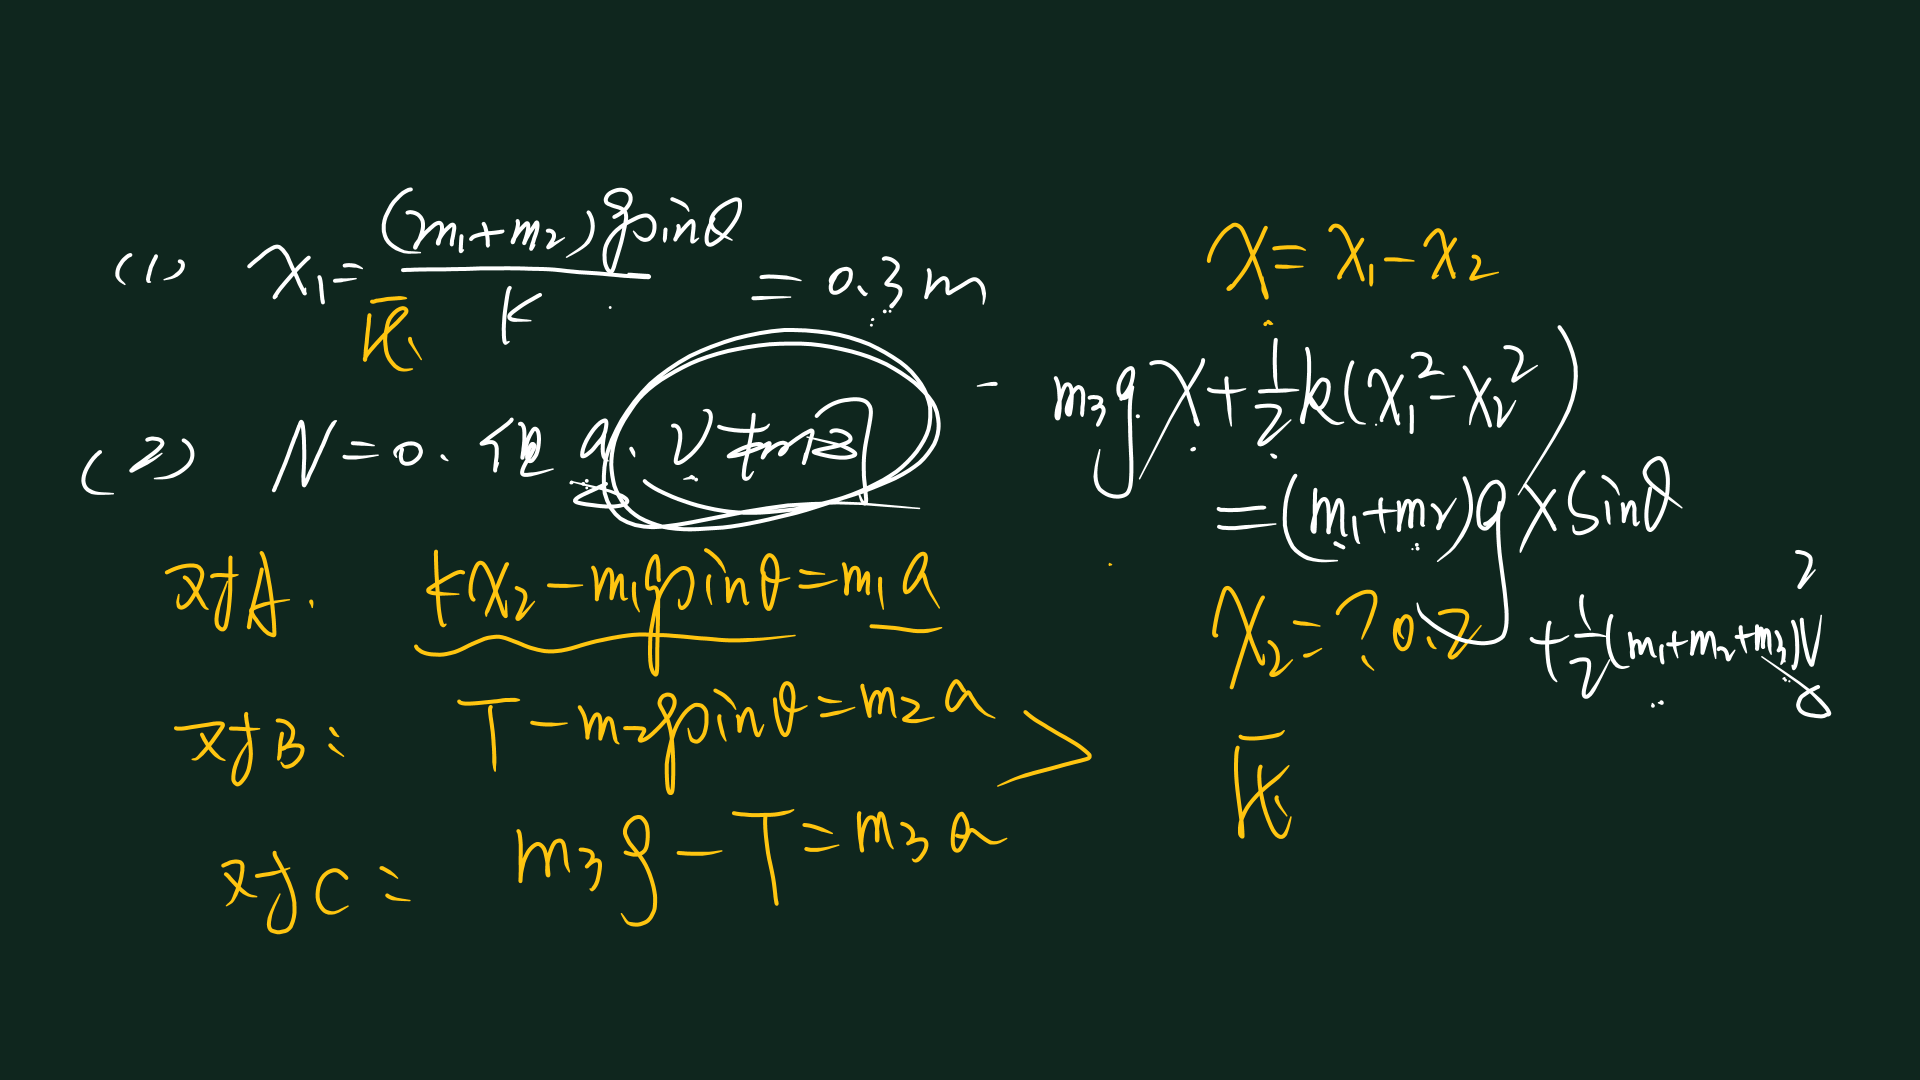 (1) x₁ = (m₁+m₂)g sinθ / k = 0.3m
压
(2) N=0. 但 a. v 相同
对A. kx₂ - m₁g sinθ = m₁a
对B: T - m₂g sinθ = m₂a
对C: m₃g - T = m₃a
x = x₁ - x₂
m₃g x + ½k(x₁² - x₂²)
= (m₁+m₂)g x sinθ
+ ½(m₁+m₂+m₃)v²
x₂ = ? 0.2
压